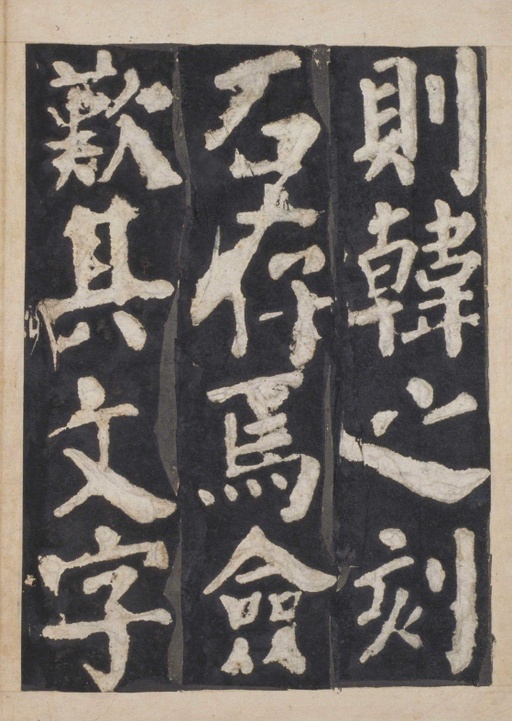 則韓之刻
石存焉僉
歎其文字